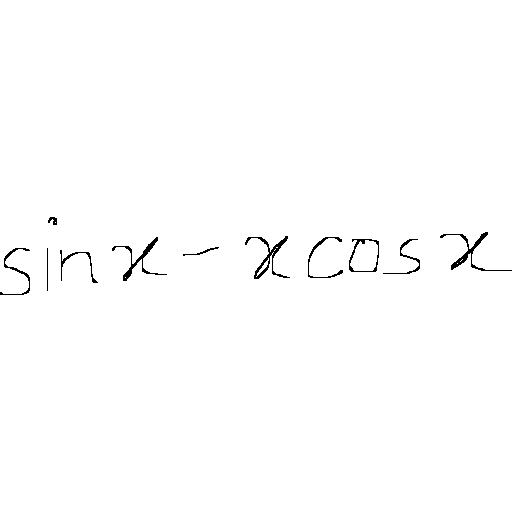 sin x - x cos x